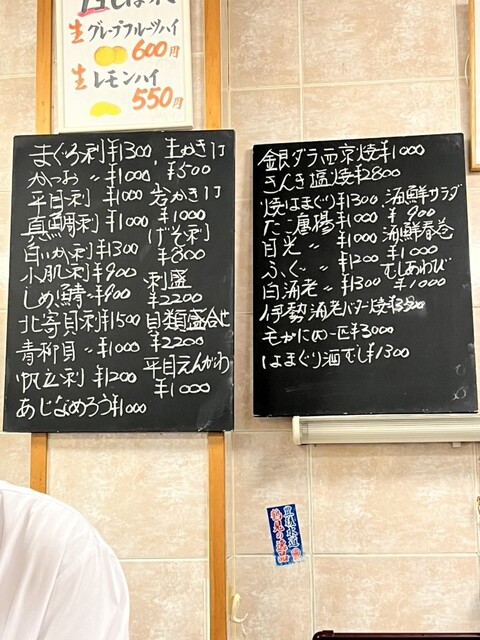 生グレープフルーツハイ
600円
生レモンハイ
550円
まぐろ刺¥1300
かつお〃¥1000
平目刺¥1000
真鯛刺¥1000
白いか刺¥1300
小肌刺¥900
しめ鯖〃¥900
北寄貝刺¥1500
青柳貝〃¥1000
帆立刺¥1200
あじなめろう¥1000
生かき1コ
¥500
岩かき1コ
¥1000
げそ刺
¥800
刺盛
¥2200
貝類盛合せ
¥2200
平目えんがわ
¥1000
銀ダラ西京焼¥1000
きんき塩焼¥2800
焼はまぐり¥1300
たこ唐揚¥1000
目光〃¥1000
ふぐ〃¥1200
白海老〃¥1300
伊勢海老バター焼¥3500
毛がに一匹¥3000
はまぐり酒むし¥1300
海鮮サラダ
¥900
海鮮春巻
¥1000
むしあわび
¥1000
豊後水道